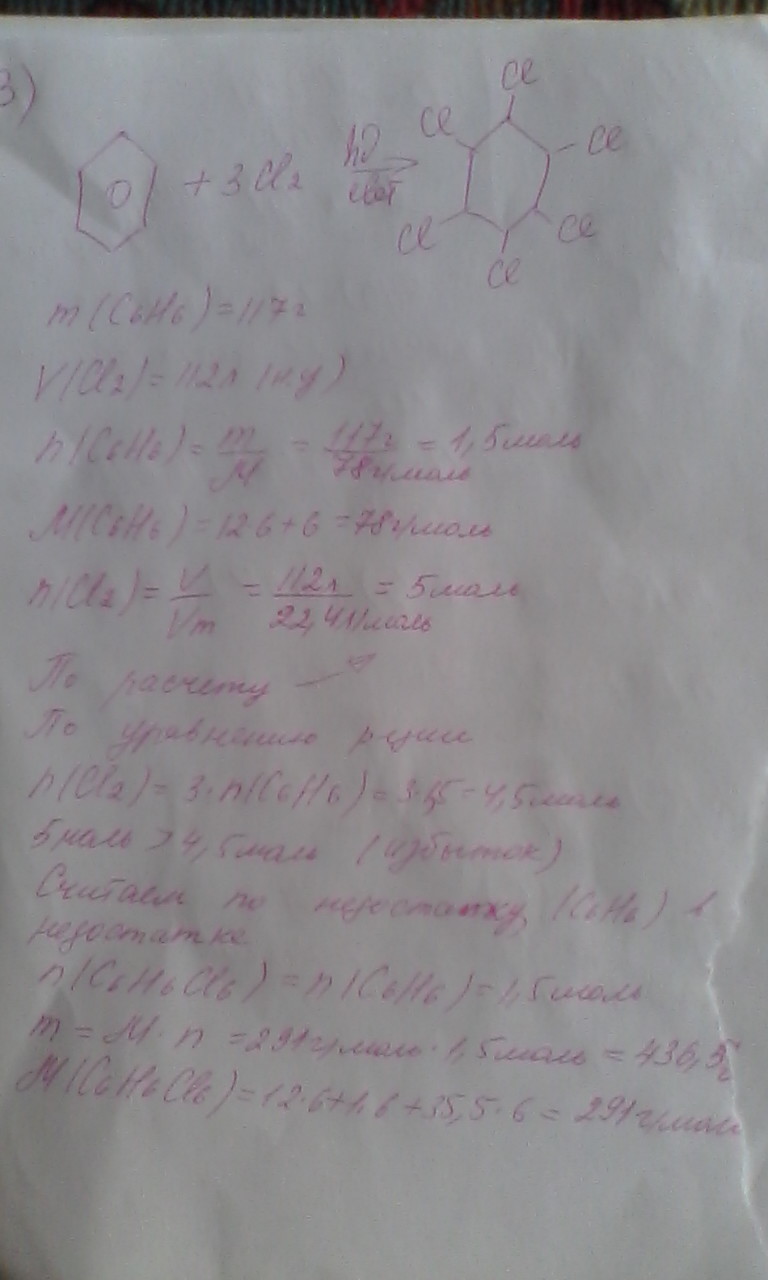 3)
Cl
Cl
Cl
+ 3Cl₂
hν
свет
Cl
Cl
Cl
m(C₆H₆) = 117г
V(Cl₂) = 112л (н.у)
n(C₆H₆) = m/M = 117г/78г/моль = 1,5моль
M(C₆H₆) = 12·6+6 = 78г/моль
n(Cl₂) = V/Vm = 112л/22,4л/моль = 5моль
По расчету
По уравнению р-ции
n(Cl₂) = 3·n(C₆H₆) = 3·1,5 = 4,5моль
5моль > 4,5моль (избыток)
Считаем по недостатку, (C₆H₆) в
недостатке
n(C₆H₆Cl₆) = n(C₆H₆) = 1,5моль
m = M·n = 291г/моль·1,5моль = 436,5г
M(C₆H₆Cl₆) = 12·6+1·6+35,5·6 = 291г/моль